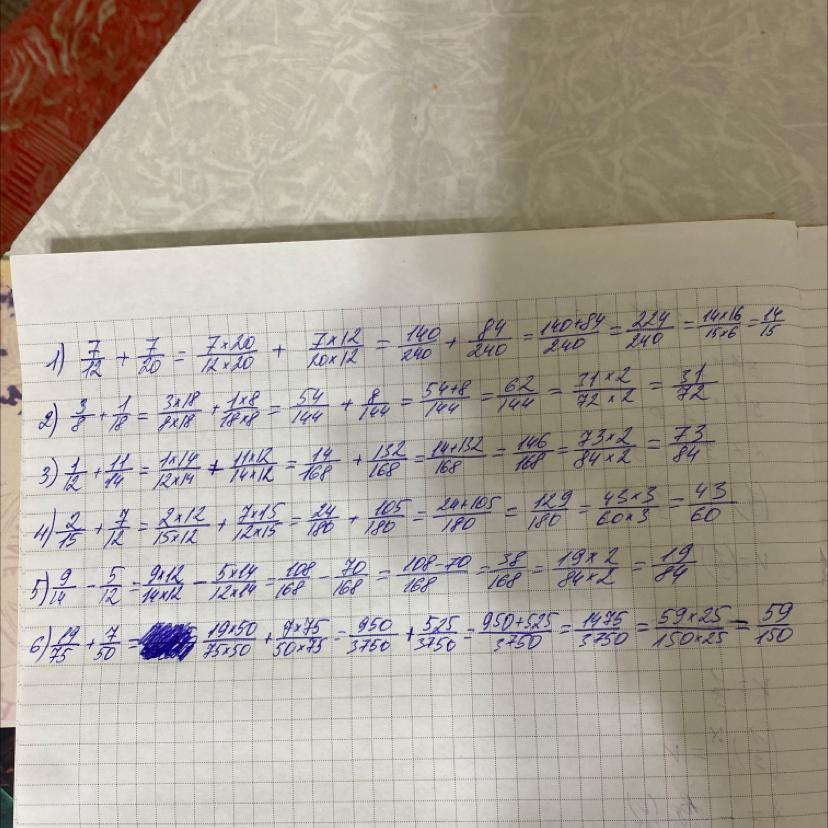 1) 7/12 + 7/20 = 7×20/12×20 + 7×12/20×12 = 140/240 + 84/240 = 140+84/240 = 224/240 = 14×16/15×6 = 14/15
2) 3/8 + 1/18 = 3×18/8×18 + 1×8/18×8 = 54/144 + 8/144 = 54+8/144 = 62/144 = 31×2/72×2 = 31/72
3) 1/12 + 11/14 = 1×14/12×14 + 11×12/14×12 = 14/168 + 132/168 = 14+132/168 = 146/168 = 73×2/84×2 = 73/84
4) 2/15 + 7/12 = 2×12/15×12 + 7×15/12×15 = 24/180 + 105/180 = 24+105/180 = 129/180 = 43×3/60×3 = 43/60
5) 9/14 - 5/12 = 9×12/14×12 - 5×14/12×14 = 108/168 - 70/168 = 108-70/168 = 38/168 = 19×2/84×2 = 19/84
6) 19/75 + 7/50 = 19×50/75×50 + 7×75/50×75 = 950/3750 + 525/3750 = 950+525/3750 = 1475/3750 = 59×25/150×25 = 59/150